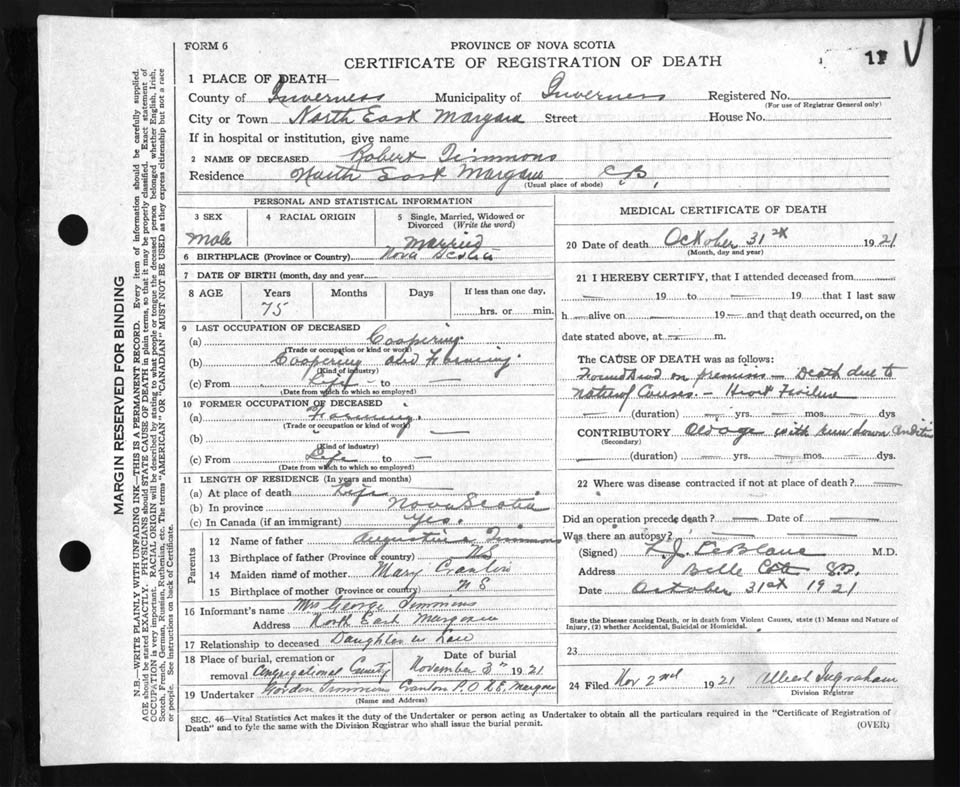 FORM 6
PROVINCE OF NOVA SCOTIA
CERTIFICATE OF REGISTRATION OF DEATH
11
1 PLACE OF DEATH—
County of Inverness Municipality of Inverness Registered No.
(For use of Registrar General only)
City or Town North East Margaree Street House No.
If in hospital or institution, give name
2 NAME OF DECEASED Robert Timmons
Residence North East Margaree C.B.
(Usual place of abode)
PERSONAL AND STATISTICAL INFORMATION
3 SEX 4 RACIAL ORIGIN 5 Single, Married, Widowed or Divorced (Write the word)
Male Married
6 BIRTHPLACE (Province or Country) Nova Scotia
7 DATE OF BIRTH (month, day and year)
8 AGE Years Months Days If less than one day,
75 hrs. or min.
9 LAST OCCUPATION OF DECEASED
(a) Coopering
(Trade or occupation or kind of work)
(b) Coopering and Farming
(Kind of industry)
(c) From Life – to —
(Date from which to which so employed)
10 FORMER OCCUPATION OF DECEASED
(a) Farming.
(Trade or occupation or kind of work)
(b) —
(Kind of industry)
(c) From Life to —
(Date from which to which so employed)
11 LENGTH OF RESIDENCE (In years and months)
(a) At place of death Life
(b) In province Nova Scotia
(c) In Canada (if an immigrant) Yes.
Parents
12 Name of father Augustin Timmons
13 Birthplace of father (Province or country) NS
14 Maiden name of mother Mary Cranton
15 Birthplace of mother (Province or country) N S
16 Informant's name Mrs George Timmons
Address North East Margaree
17 Relationship to deceased Daughter in Law
18 Place of burial, cremation or removal Congregational Cemetery Date of burial November 3rd 1921
19 Undertaker Gordon Timmons Cranton P.O. N.E. Margaree
(Name and Address)
MEDICAL CERTIFICATE OF DEATH
20 Date of death October 31st 1921
(Month, day and year)
21 I HEREBY CERTIFY, that I attended deceased from
— 19 — to — 19 — that I last saw
h— alive on — 19 — and that death occurred, on the
date stated above, at — m.
The CAUSE OF DEATH was as follows:
Found Dead on premises – Death due to
natural Causes. – Heart Failure
— (duration) — yrs. — mos. — dys
CONTRIBUTORY Old age with run down Condition
(Secondary)
— (duration) — yrs. — mos. — dys.
22 Where was disease contracted if not at place of death? —
Did an operation precede death? — Date of —
Was there an autopsy? —
(Signed) L. J. LeBlanc M.D.
Address Belle Cote
Date October 31st 1921
State the Disease causing Death, or in death from Violent Causes, state (1) Means and Nature of
Injury, (2) whether Accidental, Suicidal or Homicidal.
23
24 Filed Nov 2nd 1921 Albert Ingraham
Division Registrar
SEC. 46—Vital Statistics Act makes it the duty of the Undertaker or person acting as Undertaker to obtain all the particulars required in the "Certificate of Registration of
Death" and to fyle the same with the Division Registrar who shall issue the burial permit.
(OVER)
MARGIN RESERVED FOR BINDING
N.B.—WRITE PLAINLY WITH UNFADING INK—THIS IS A PERMANENT RECORD. Every item of information should be carefully supplied.
AGE should be stated EXACTLY. PHYSICIANS should STATE CAUSE OF DEATH in plain terms, so that it may be properly classified. Exact statement of
OCCUPATION is very important. RACIAL ORIGIN will be described by stating to what people or tongue the deceased person belonged whether English, Irish,
Scotch, French, German, Russian, Ruthenian, etc. The terms "AMERICAN" OR "CANADIAN" MUST NOT BE USED as they express citizenship but not a race
or people. See instructions on back of Certificate.